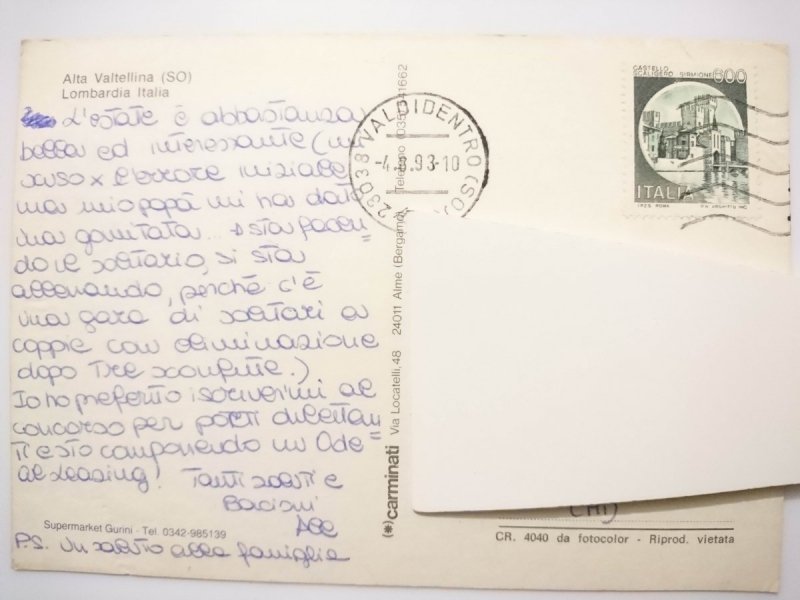 Alta Valtellina (SO)
Lombardia Italia
L'estate è abbastanza
bella ed interessante (mi
scuso x l'errore iniziale
ma mio papà mi ha dato
una gomitata... sta facen-
do il solitario, si sta
allenando, perché c'è
una gara di solitari a
coppie con eliminazione
dopo tre sconfitte.)
Io ho preferito iscrivermi al
concorso per poeti dilettan
ti e sto componendo un Ode
al Leasing! Tanti saluti e
Bacioni
P.S. Un saluto alla famiglia
Supermarket Gurini - Tel. 0342-985139
(*) carminati Via Locatelli, 48 24011 Almè (Bergamo) Telefono (035) 541662
23038 VALDIDENTRO (SO)
93-10
CASTELLO
SCALIGERO SIRMIONE 600
ITALIA
I.P.Z.S. ROMA
(MI)
CR. 4040 da fotocolor - Riprod. vietata